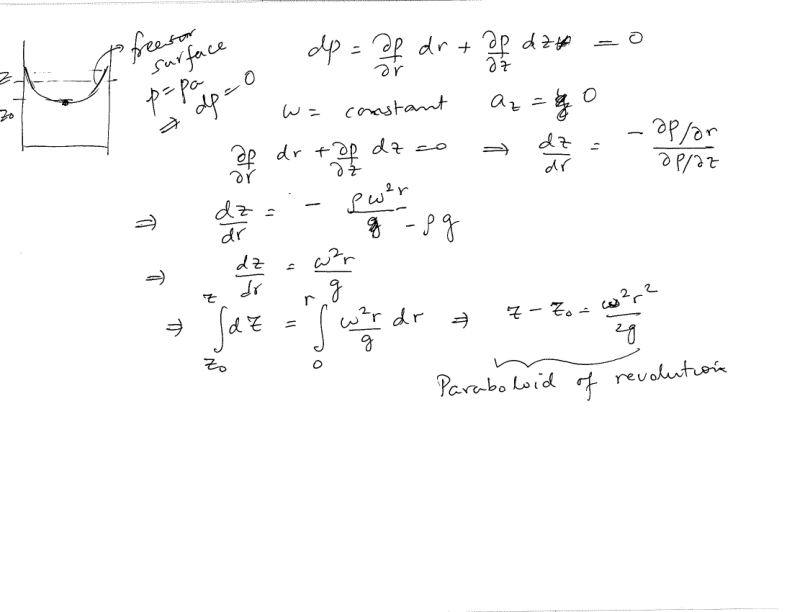 freesur
surface
p = pa
⇒ dp = 0
z
z₀
dp = ∂p/∂r dr + ∂p/∂z dz = 0
ω = constant a_z = 0
∂p/∂r dr + ∂p/∂z dz = 0 ⇒ dz/dr = - ∂p/∂r / ∂p/∂z
⇒ dz/dr = - ρω²r / -ρg
⇒ dz/dr = ω²r/g
⇒ ∫_{z₀}^{z} dz = ∫_{0}^{r} ω²r/g dr ⇒ z - z₀ = ω²r²/2g
Paraboloid of revolution